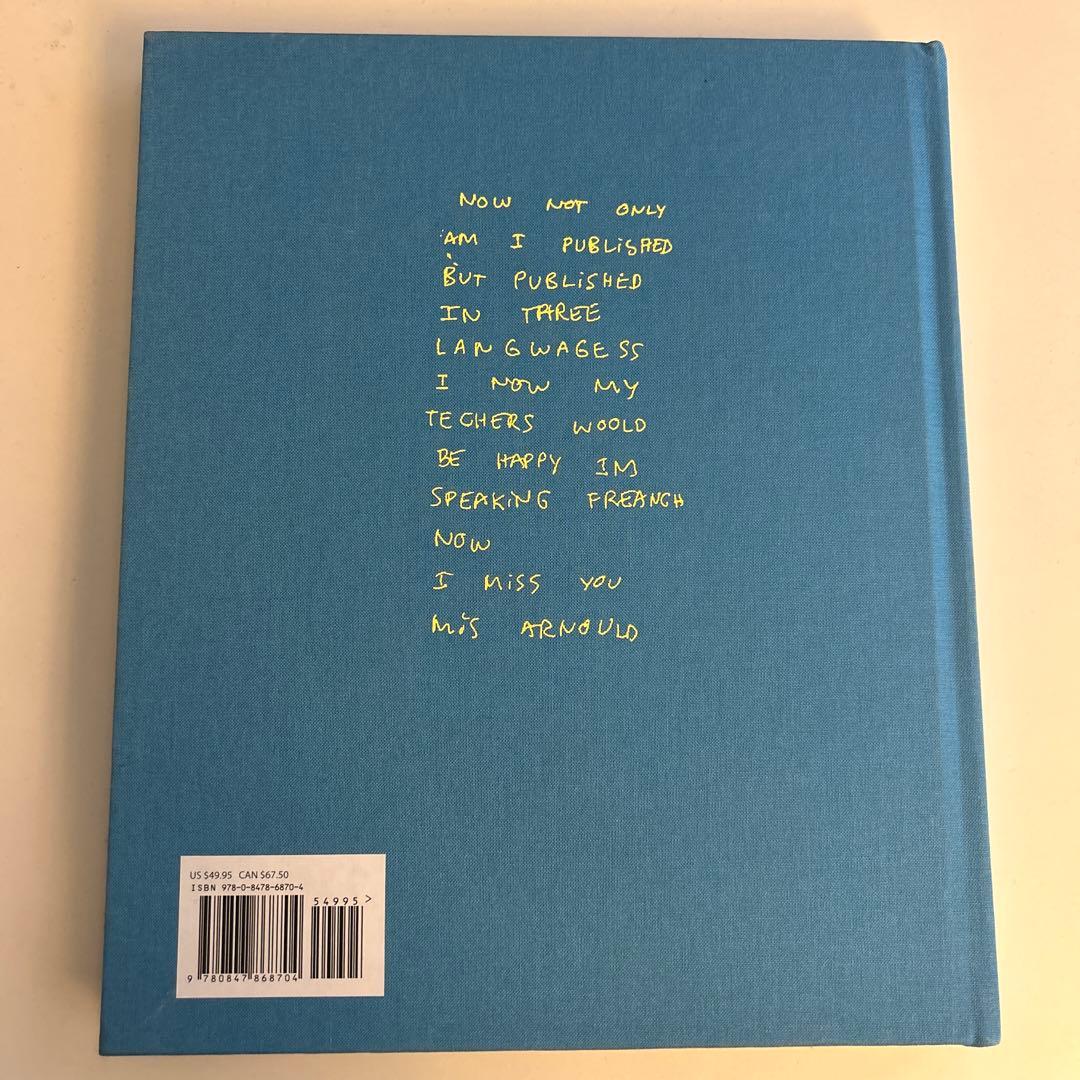 NOW NOT ONLY
AM I PUBLiSHED
BUT PUBLiSHED
IN THREE
LANGWAGESS
I NOW MY
TECHERS WOOLD
BE HAPPY IM
SPEAKiNG FREANCH
NOW
I MiSS YOU
MiS ARNOULD
US $49.95 CAN $67.50
ISBN 978-0-8478-6870-4
54995>
9 780847 868704